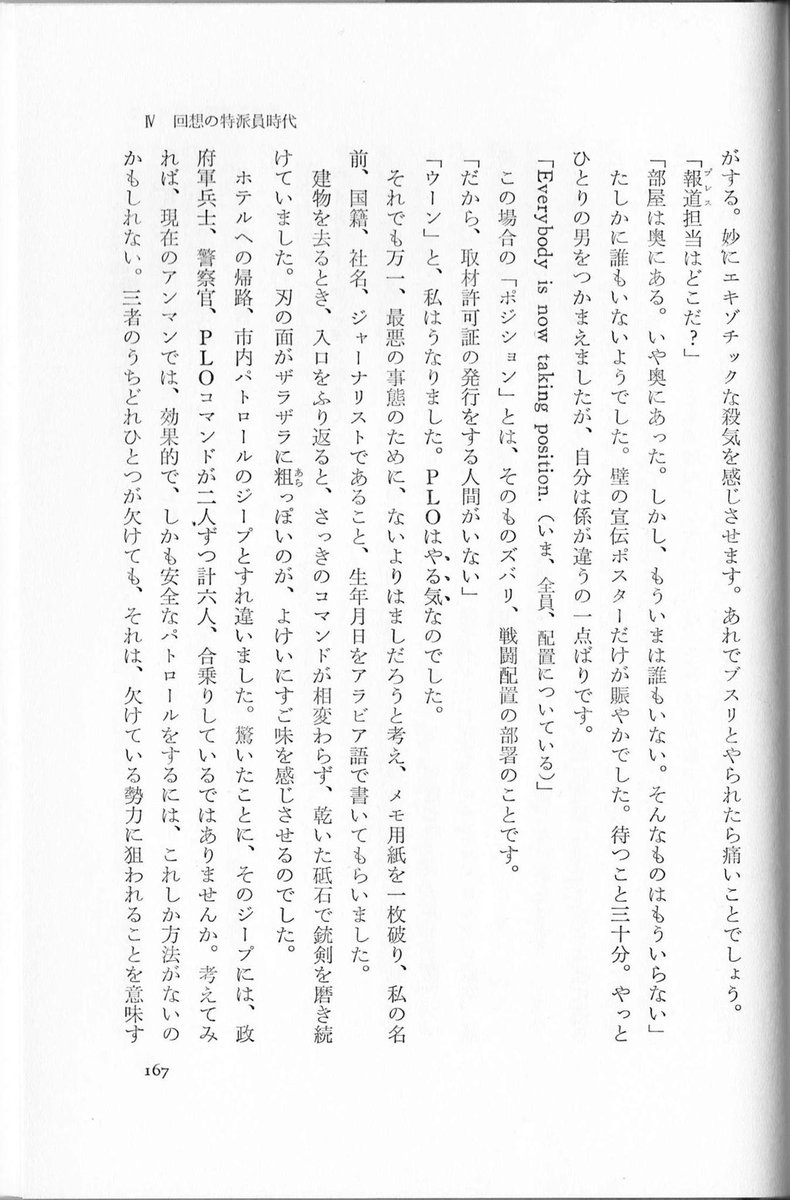 Ⅳ 回想の特派員時代
がする。妙にエキゾチックな殺気を感じさせます。あれでブスリとやられたら痛いことでしょう。
「報道担当はどこだ?」
プレス
「部屋は奥にある。いや奥にあった。しかし、もういまは誰もいない。そんなものはもういらない」
たしかに誰もいないようでした。壁の宣伝ポスターだけが賑やかでした。待つこと三十分。やっと
ひとりの男をつかまえましたが、自分は係が違うの一点ばりです。
「Everybody is now taking position.(いま、全員、配置についている)」
この場合の「ポジション」とは、そのものズバリ、戦闘配置の部署のことです。
「だから、取材許可証の発行をする人間がいない」
「ウーン」と、私はうなりました。PLOはやる気なのでした。
それでも万一、最悪の事態のために、ないよりはましだろうと考え、メモ用紙を一枚破り、私の名
前、国籍、社名、ジャーナリストであること、生年月日をアラビア語で書いてもらいました。
建物を去るとき、入口をふり返ると、さっきのコマンドが相変わらず、乾いた砥石で銃剣を磨き続
けていました。刃の面がザラザラに粗っぽいのが、よけいにすご味を感じさせるのでした。
あら
ホテルへの帰路、市内パトロールのジープとすれ違いました。驚いたことに、そのジープには、政
府軍兵士、警察官、PLOコマンドが二人ずつ計六人、合乗りしているではありませんか。考えてみ
れば、現在のアンマンでは、効果的で、しかも安全なパトロールをするには、これしか方法がないの
かもしれない。三者のうちどれひとつが欠けても、それは、欠けている勢力に狙われることを意味す
167